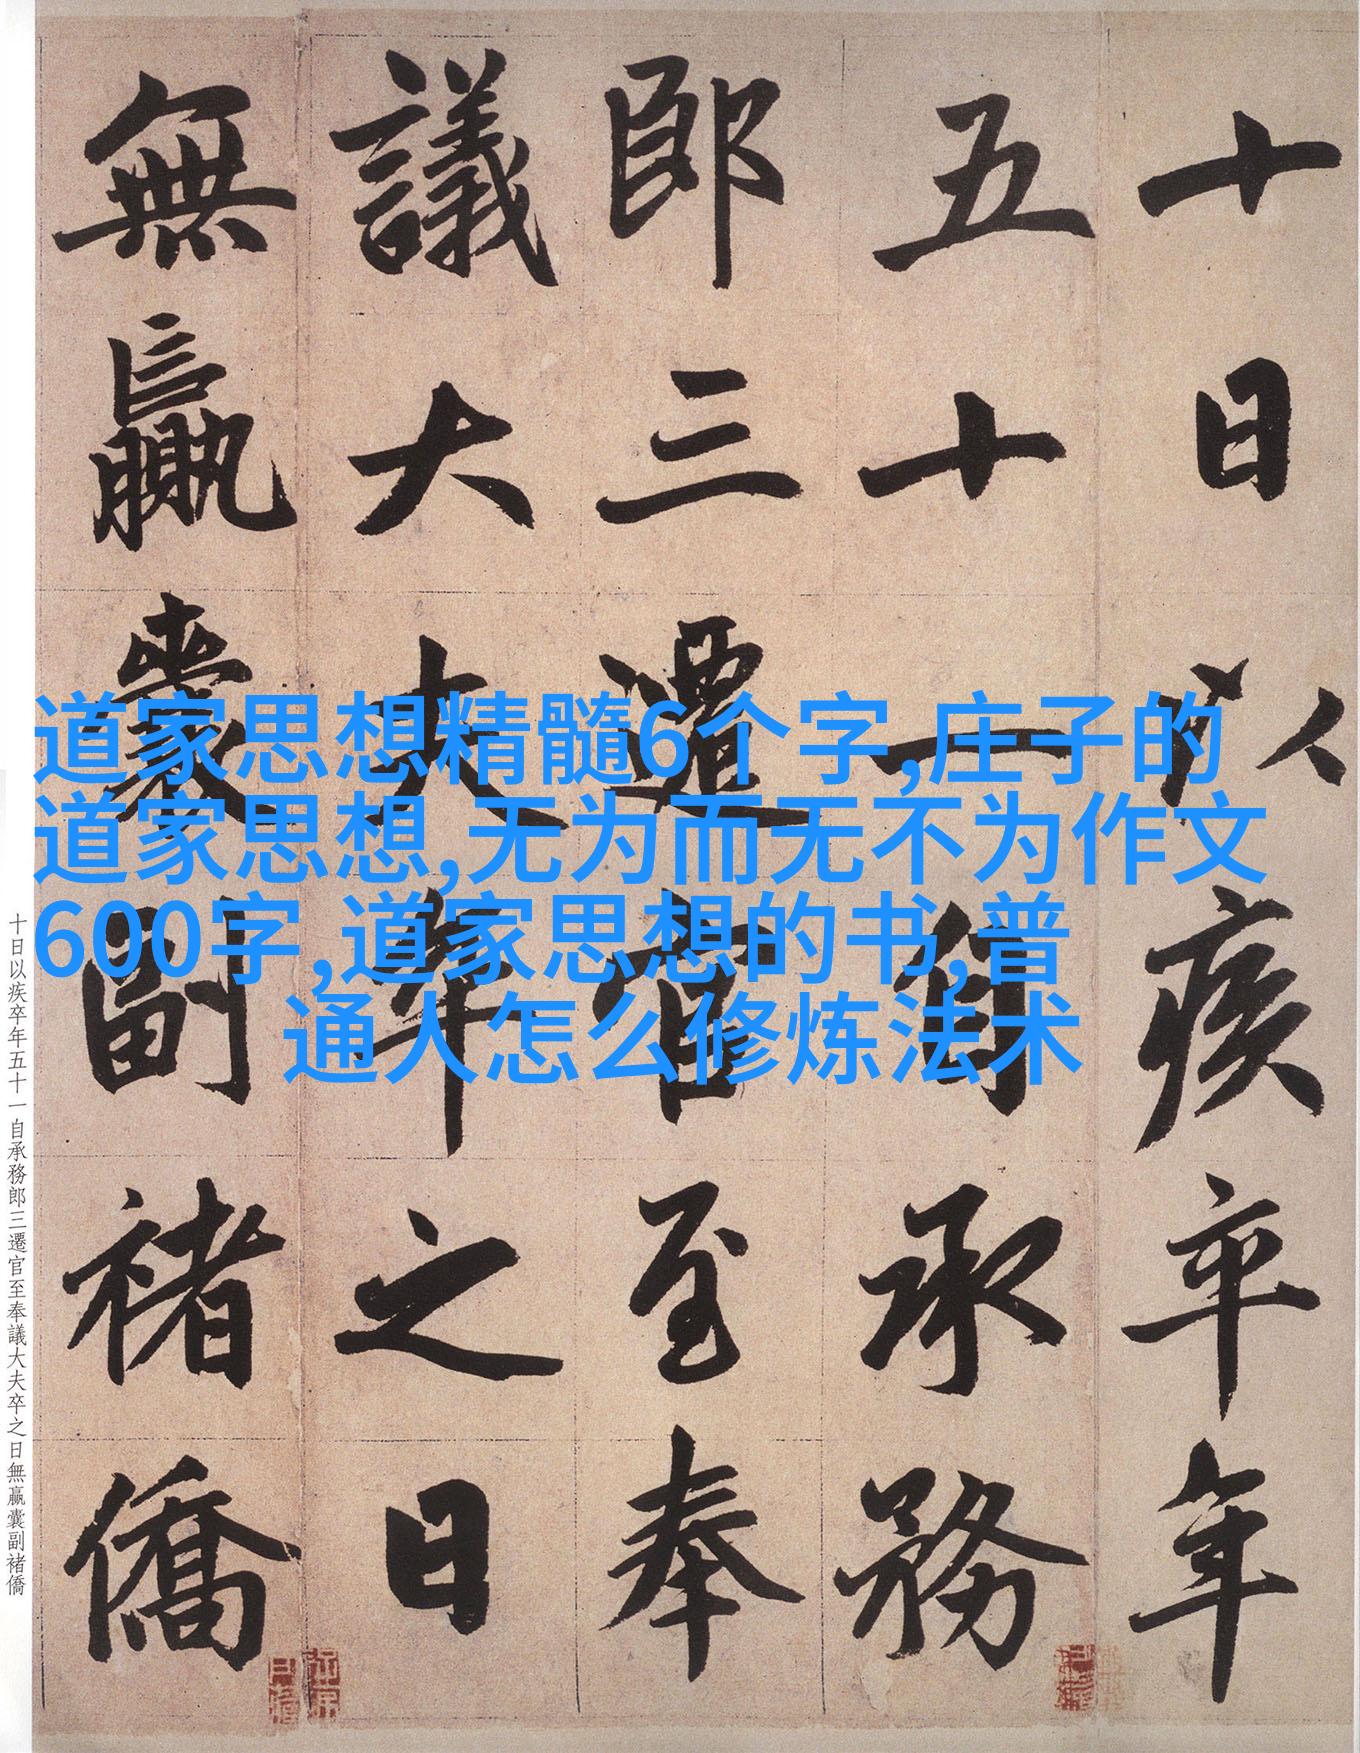 十日以疾卒年
五十一自承務
郎三遷官至奉
議大夫卒之日
無贏囊副褚僑
道家思想精髓6个字,庄子的
道家思想,无为而无不为作文
600字,道家思想的书,普
通人怎么修炼法术
十日以疾卒年五十一自承務郎三遷官至奉議大夫卒之日無贏囊副褚僑